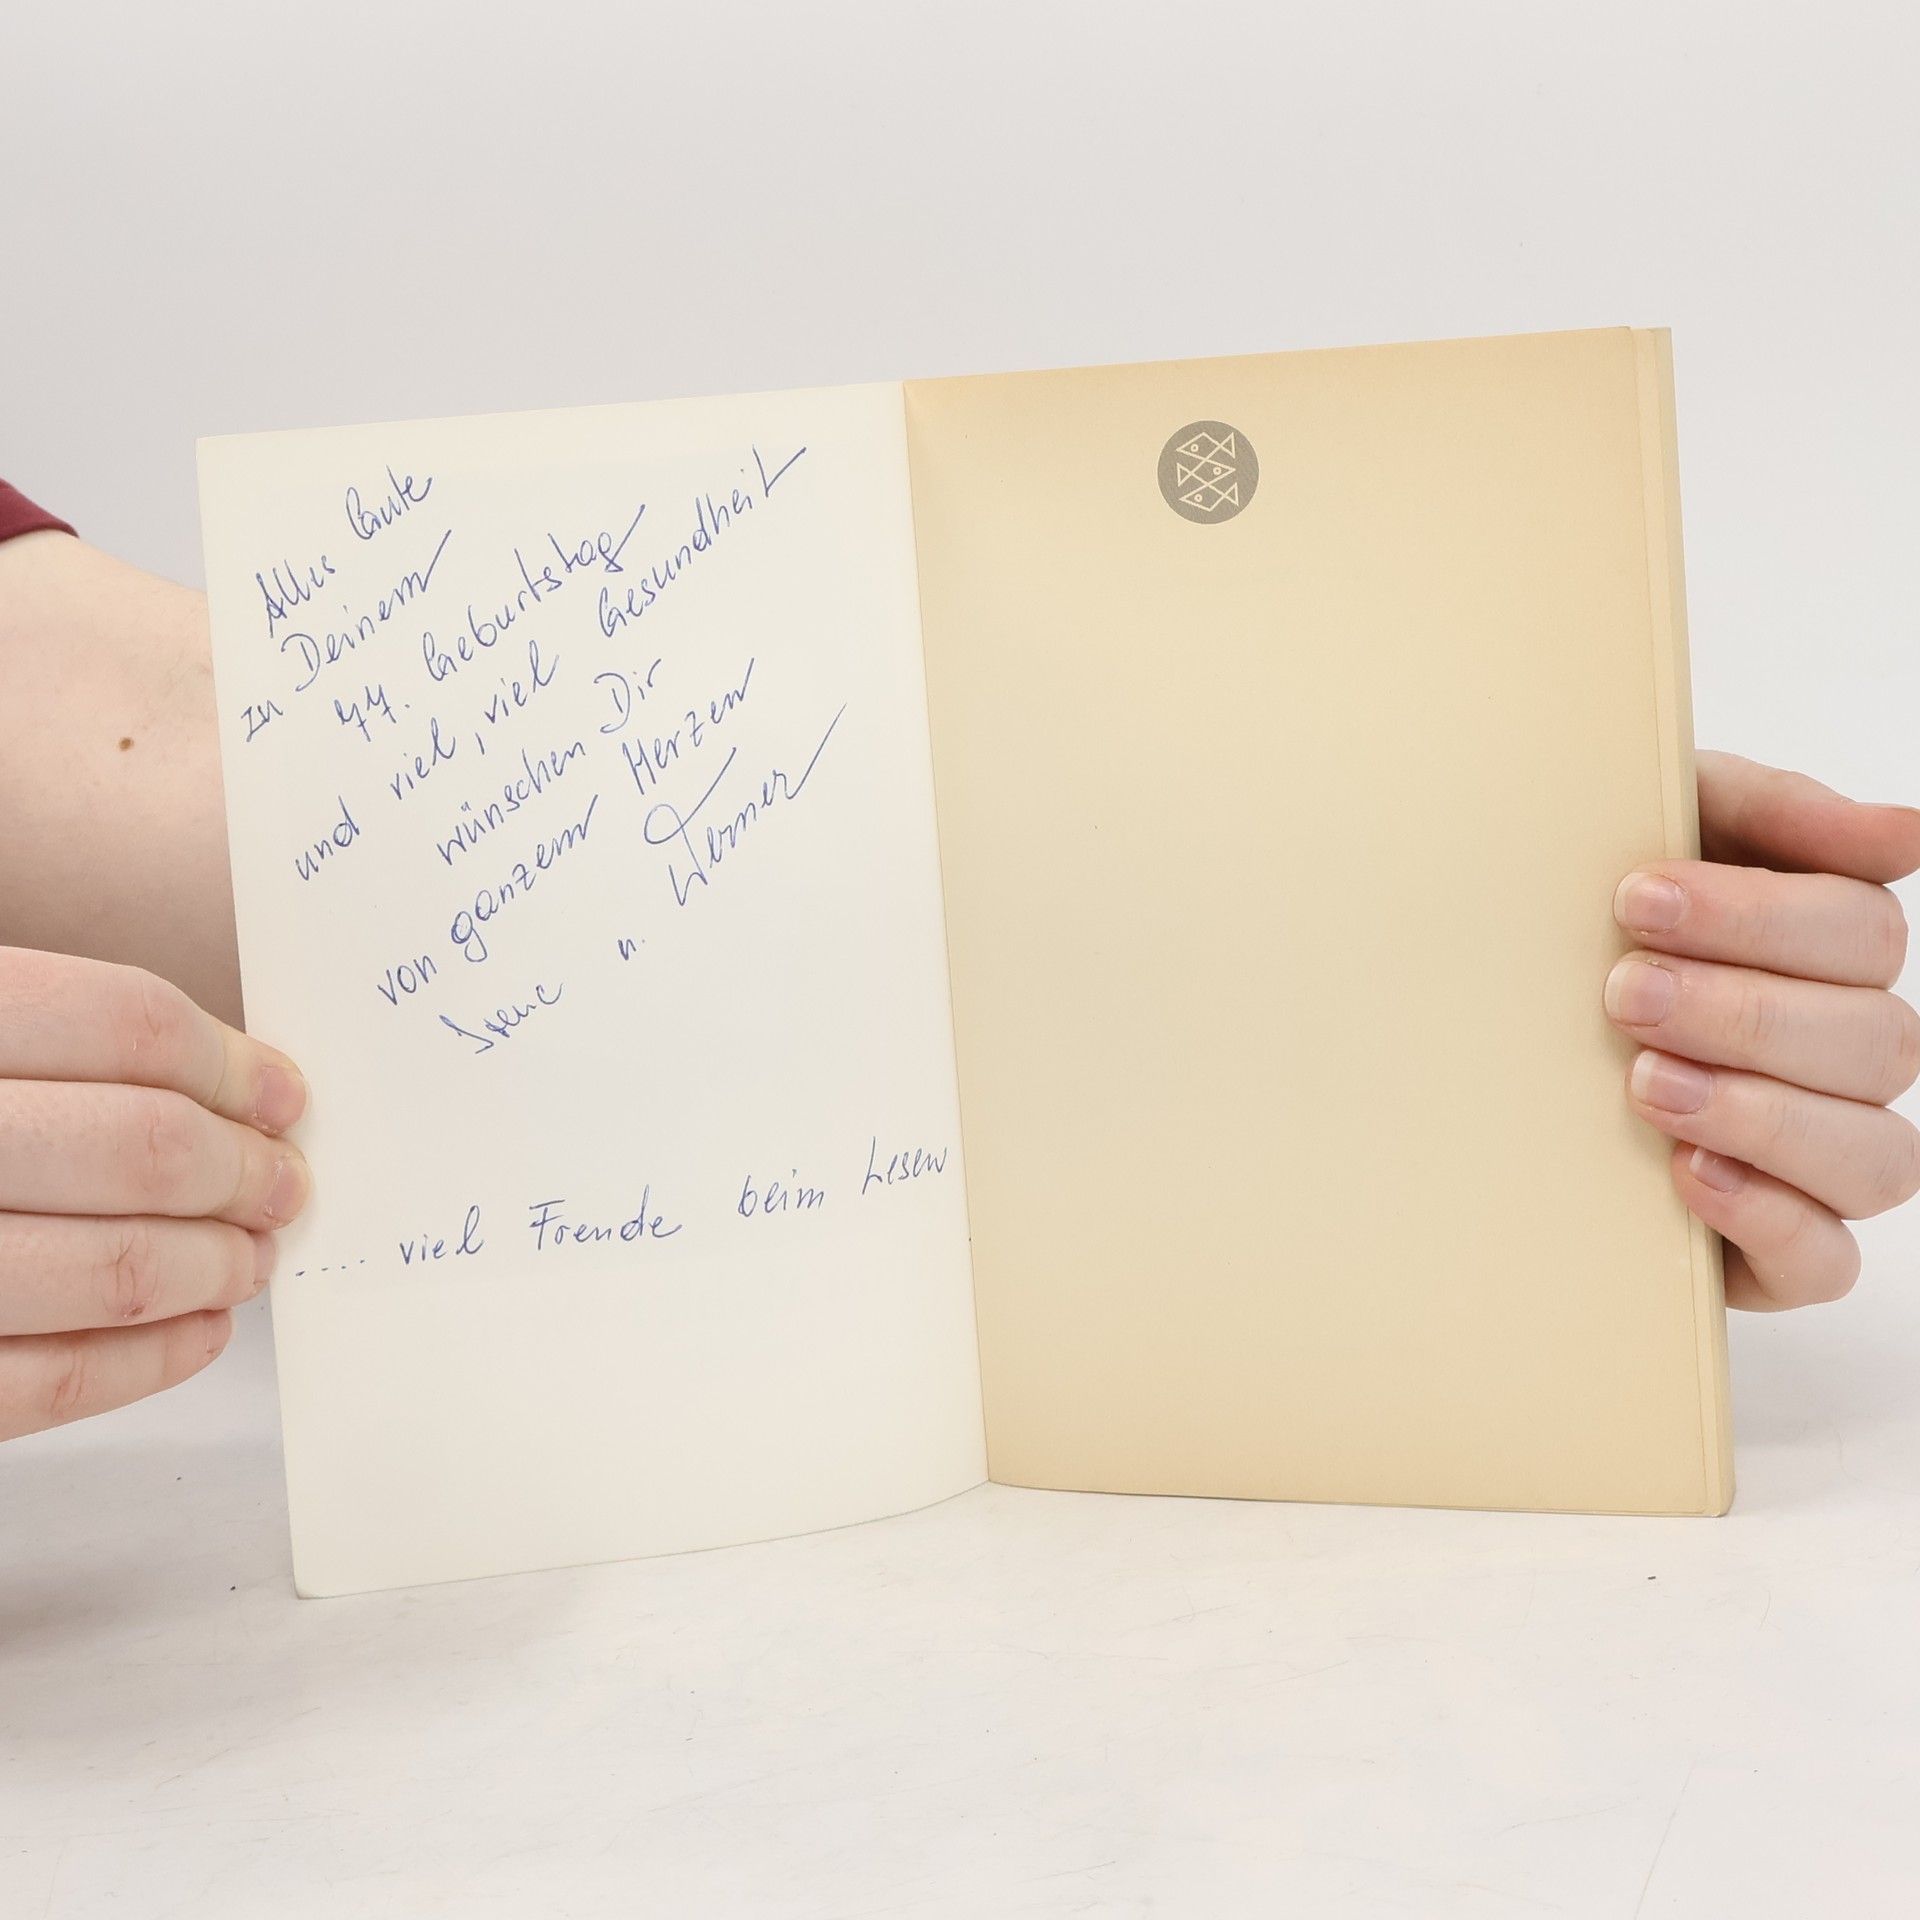 Alles Gute
zu Deinem
77. Geburtstag
und viel, viel Gesundheit
wünschen Dir
von ganzem Herzen
Irene u. Werner
.... viel Freude beim Lesen